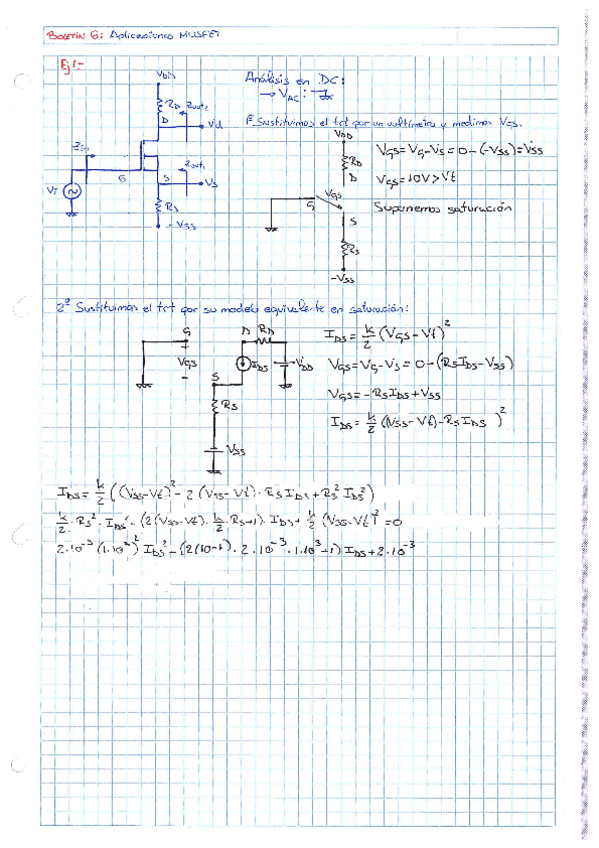 BOLETÍN 6: Aplicaciones MOSFET
Ej 1.-
VDD
RD
Zout2
D
Vd
Zin
Zout1
G
S
Vs
VT
RS
-VSS
Análisis en DC:
→ VAC:
1º Sustituimos el trt por un voltímetro y medimos VGS.
VDD
RD
D
VGS
G
S
RS
-VSS
VGS = VG - VS = 0 - (-VSS) = VSS
VGS = 10V > Vt
Suponemos saturación
2º Sustituimos el trt por su modelo equivalente en saturación:
G
+
VGS
-
D
RD
IDS
VDD
S
RS
VSS
IDS = k/2 (VGS - Vt)²
VGS = VG - VS = 0 - (RS IDS - VSS)
VGS = - RS IDS + VSS
IDS = k/2 (VSS - Vt) - RS IDS )²
IDS = k/2 ((VSS - Vt)² - 2 (VSS - Vt) · RS IDS + RS² IDS²)
k/2 · RS² · IDS² - (2(VSS - Vt) · k/2 · RS + 1) · IDS + k/2 (VSS - Vt)² = 0
2·10⁻³ (1·10³)² IDS² - (2(10-1) · 2·10⁻³ · 1·10³ + 1) IDS + 2·10⁻³